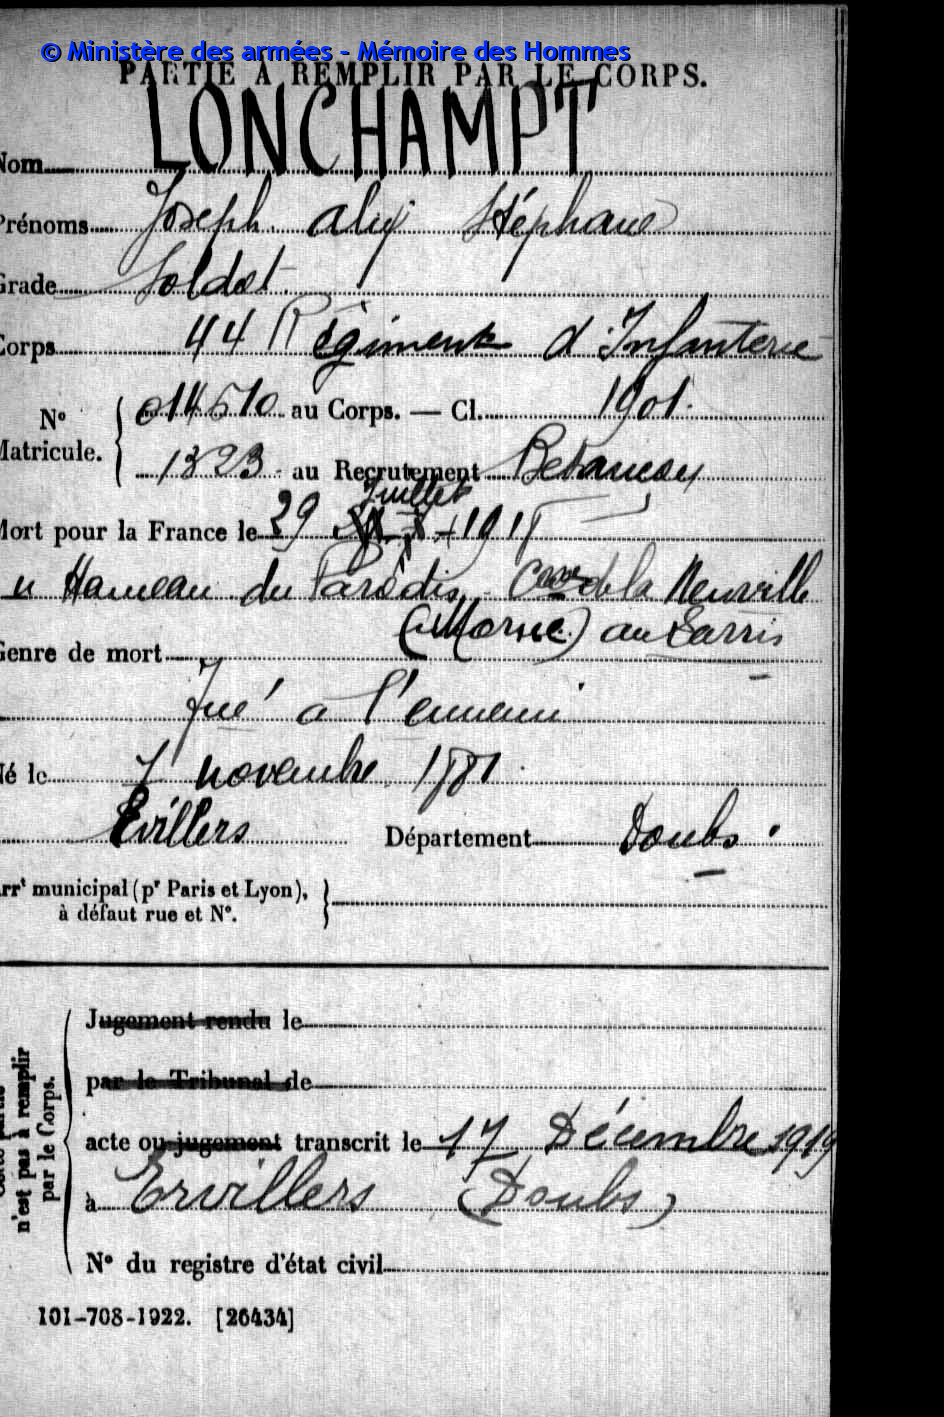 © Ministère des armées - Mémoire des Hommes
PARTIE À REMPLIR PAR LE CORPS.
LONCHAMPT
Nom
Prénoms Joseph. Alix Stéphane
Grade Soldat
Corps 44 Régiment d'Infanterie
N° Matricule. 014510 au Corps. — Cl. 1901.
1323 au Recrutement Besançon
Juillet
Mort pour la France le 29 1918
u Hameau du Paradis Cne de la Neuville
(Marne) au Larris
Genre de mort
Tué à l'ennemi
Né le 7 novembre 1881
Evillers Département Doubs.
Arrt municipal (pr Paris et Lyon),
à défaut rue et N°.
Jugement rendu le
par le Tribunal de
acte ou jugement transcrit le 17 Décembre 1919
à Ervillers (Doubs)
N° du registre d'état civil
n'est pas à remplir
par le Corps.
101-708-1922. [26434]